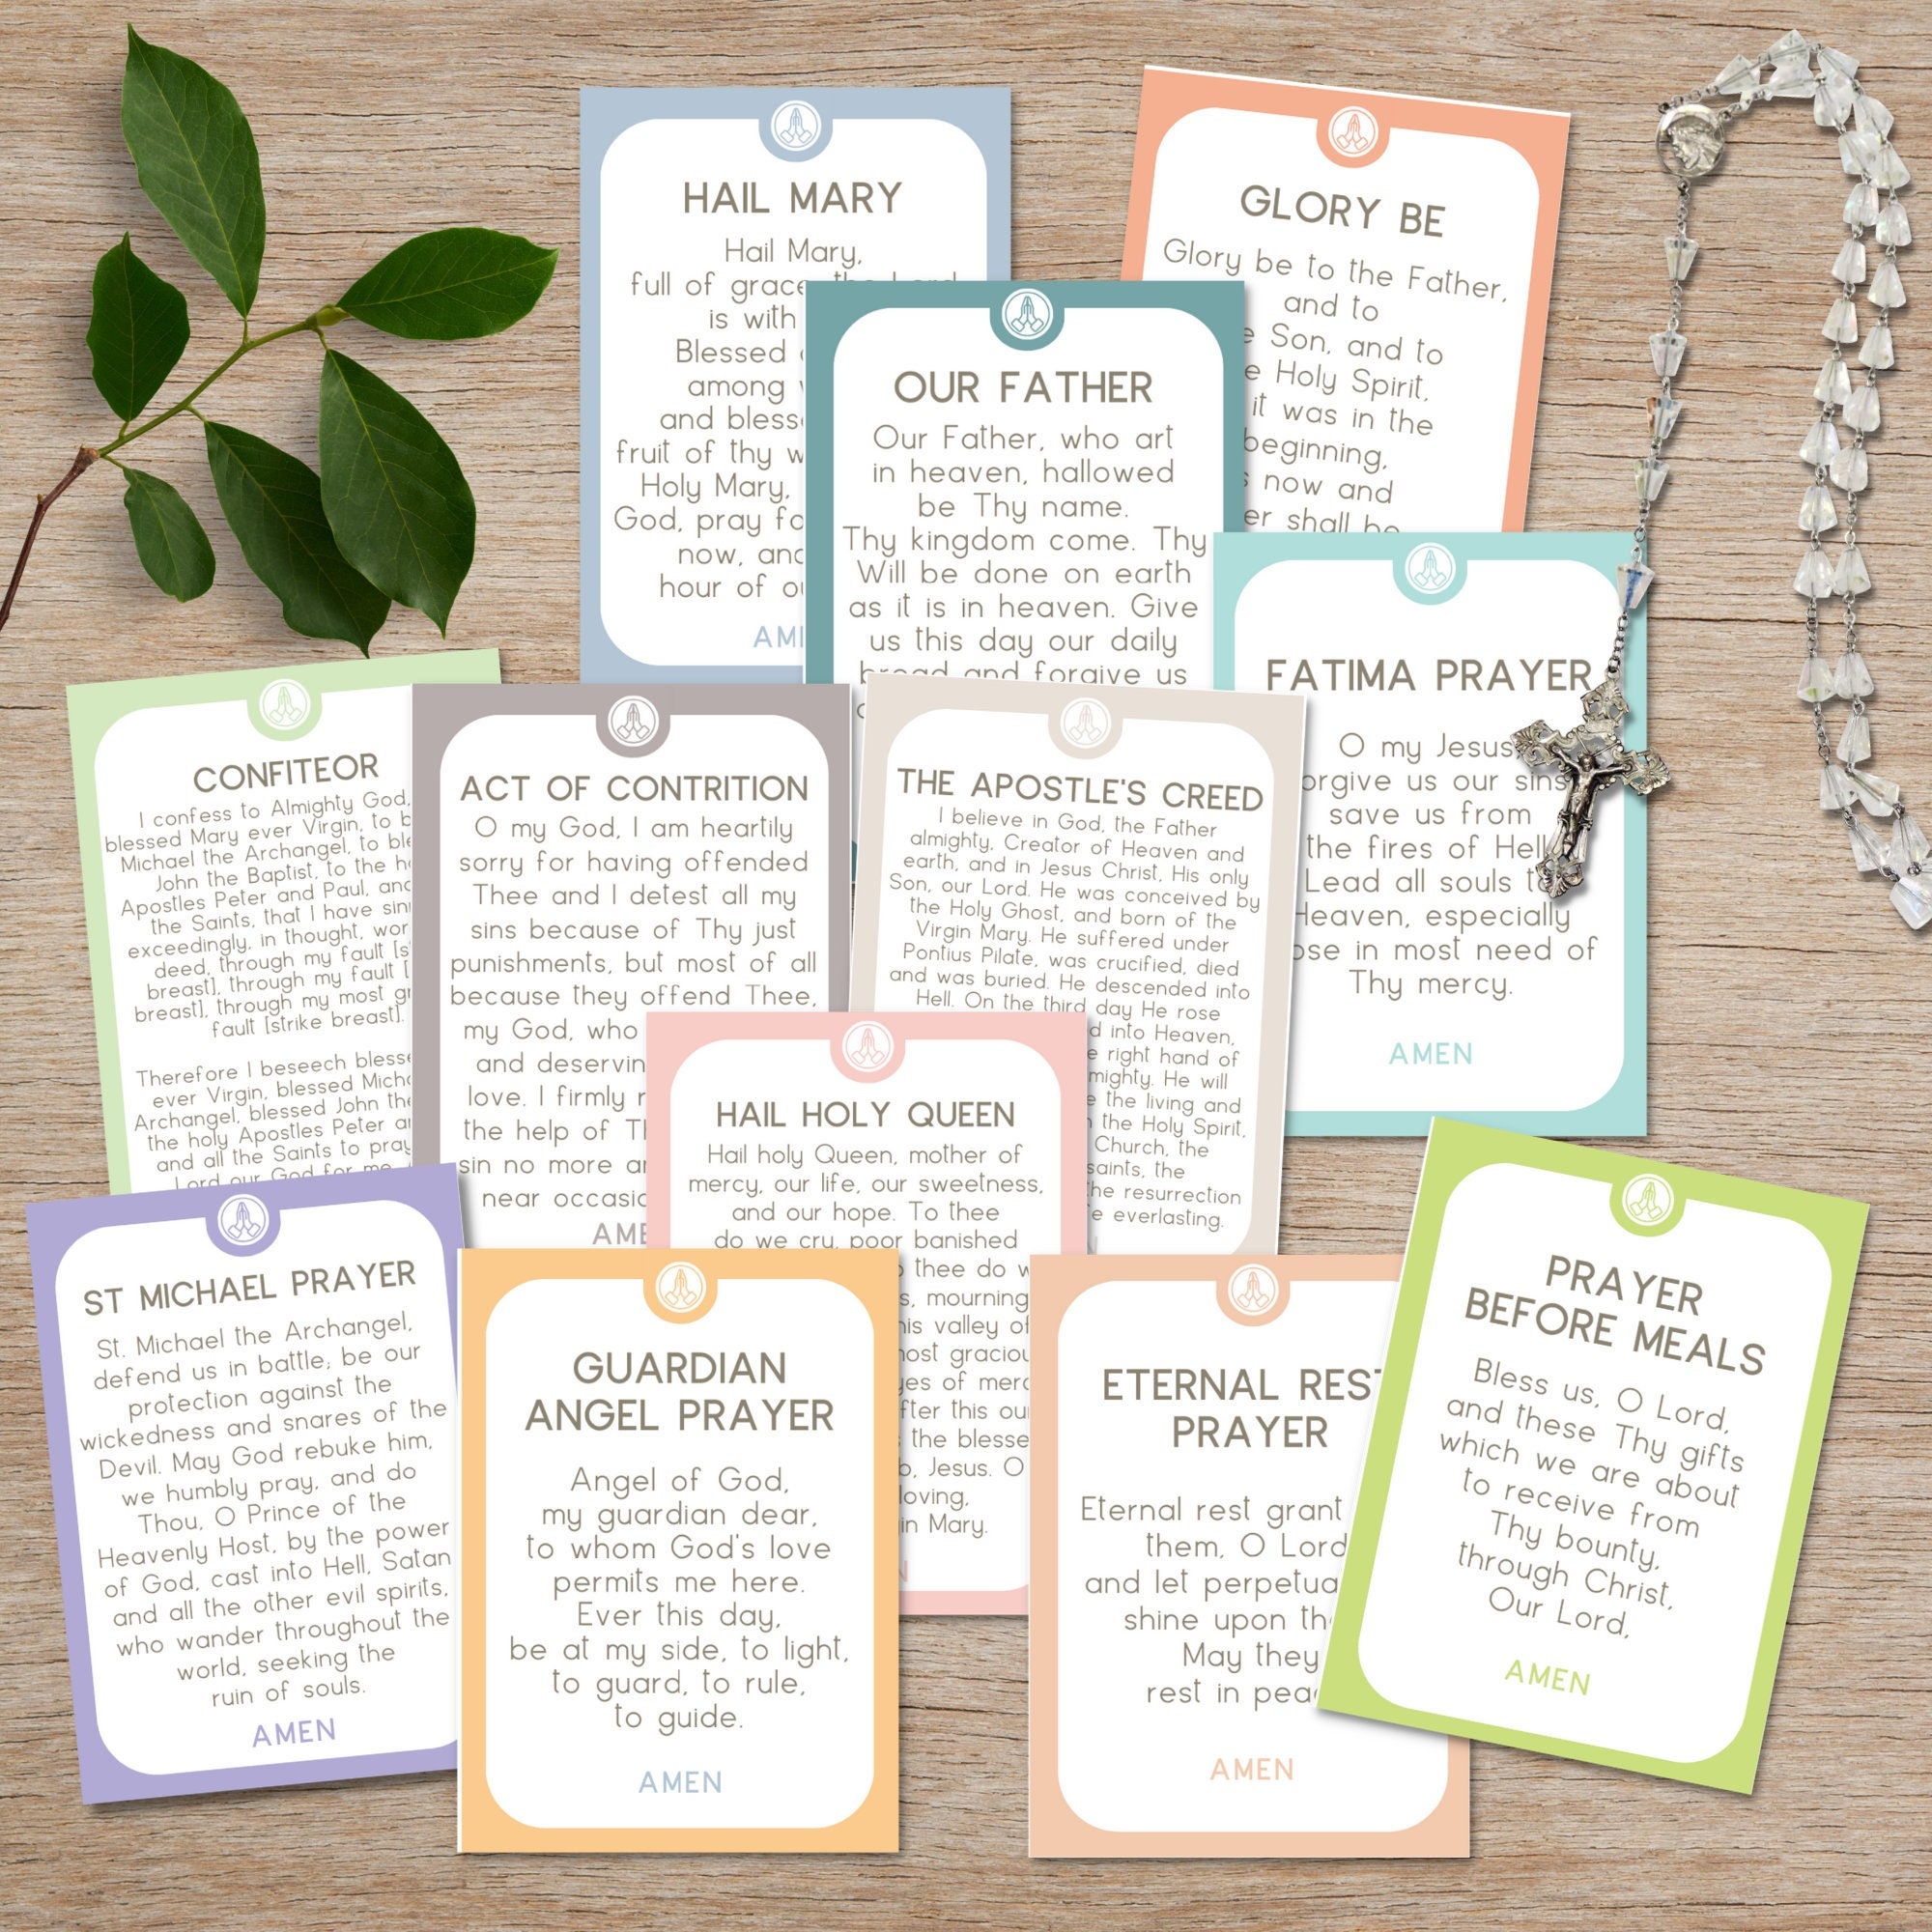 HAIL MARY
Hail Mary,
full of grace, the Lord
is with
Blessed
among
and
fruit of thy
Holy Mary,
God, pray
now,
hour of
GLORY BE
Glory be to the Father,
and to
Son, and to
Holy Spirit,
it was in the
beginning,
now and
shall be
OUR FATHER
Our Father, who art
in heaven, hallowed
be Thy name.
Thy kingdom come. Thy
Will be done on earth
as it is in heaven. Give
us this day our daily
bread and forgive us
FATIMA PRAYER
O my Jesus
us our sins
save us from
the fires of Hell
Lead all souls
Heaven, especially
in most need of
Thy mercy.
AMEN
CONFITEOR
I confess to Almighty God,
blessed Mary ever Virgin, to
Michael the Archangel, to
John the Baptist, to the
Apostles Peter and Paul,
the Saints, that I have
exceedingly, in thought,
deed, through my fault
breast], through my fault
breast], through my most
fault [strike breast].
Therefore I beseech
ever Virgin, blessed
Archangel, blessed John
the holy Apostles Peter
and all the Saints to pray
Lord our God for me
ACT OF CONTRITION
O my God, I am heartily
sorry for having offended
Thee and I detest all my
sins because of Thy just
punishments, but most of all
because they offend Thee,
my God, who
and
love. I firmly
the help of
sin no more
near
THE APOSTLE'S CREED
I believe in God, the Father
almighty, Creator of Heaven and
earth, and in Jesus Christ, His only
Son, our Lord. He was conceived by
the Holy Ghost, and born of the
Virgin Mary. He suffered under
Pontius Pilate, was crucified, died
and was buried. He descended into
Hell. On the third day He rose
into Heaven,
right hand of
He will
the living and
the Holy Spirit,
Church, the
saints, the
resurrection
everlasting.
HAIL HOLY QUEEN
Hail holy Queen, mother of
mercy, our life, our sweetness,
and our hope. To thee
do we cry, poor banished
thee do
mourning
valley of
of
this
the
Jesus. O
loving,
Mary.
ST MICHAEL PRAYER
St. Michael the Archangel,
defend us in battle; be our
protection against the
wickedness and snares of the
Devil. May God rebuke him,
we humbly pray, and do
Thou, O Prince of the
Heavenly Host, by the power
of God, cast into Hell, Satan
and all the other evil spirits,
who wander throughout the
world, seeking the
ruin of souls.
AMEN
GUARDIAN
ANGEL PRAYER
Angel of God,
my guardian dear,
to whom God's love
permits me here.
Ever this day,
be at my side, to light,
to guard, to rule,
to guide.
AMEN
ETERNAL REST
PRAYER
Eternal rest grant
them, O Lord
and let
shine upon
May they
rest in
AMEN
PRAYER
BEFORE MEALS
Bless us, O Lord,
and these Thy gifts
which we are about
to receive from
Thy bounty,
through Christ,
Our Lord,
AMEN